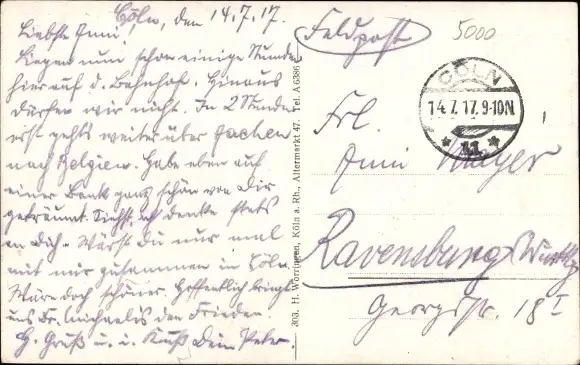 Cöln, den 14.7.17.
Liebste Anni,
Liegen nun schon einige Stunden
hier auf d. Bahnhof. Hinaus
dürfen wir nicht. In 2 Stunden
erst gehts weiter über Aachen
nach Belgien. Habe eben auf
einer Bank ganz schön von Dir
geträumt. Siehst, ich denke stets
an Dich. Wärst Du nur mal
mit mir zusammen in Cöln.
Wäre doch schöner. Hoffentlich bringt
uns Dr. Michaelis den Frieden.
H. Gruß u. i. Kuß Dein Peter.
303. H. Worringen, Köln a. Rh., Altermarkt 47. Tel. A 6386
Feldpost
5000
CÖLN
14.7.17.9-10N.
* 11 *
Frl.
Anni Mayer
Ravensburg Württbg
Georgstr. 18 I